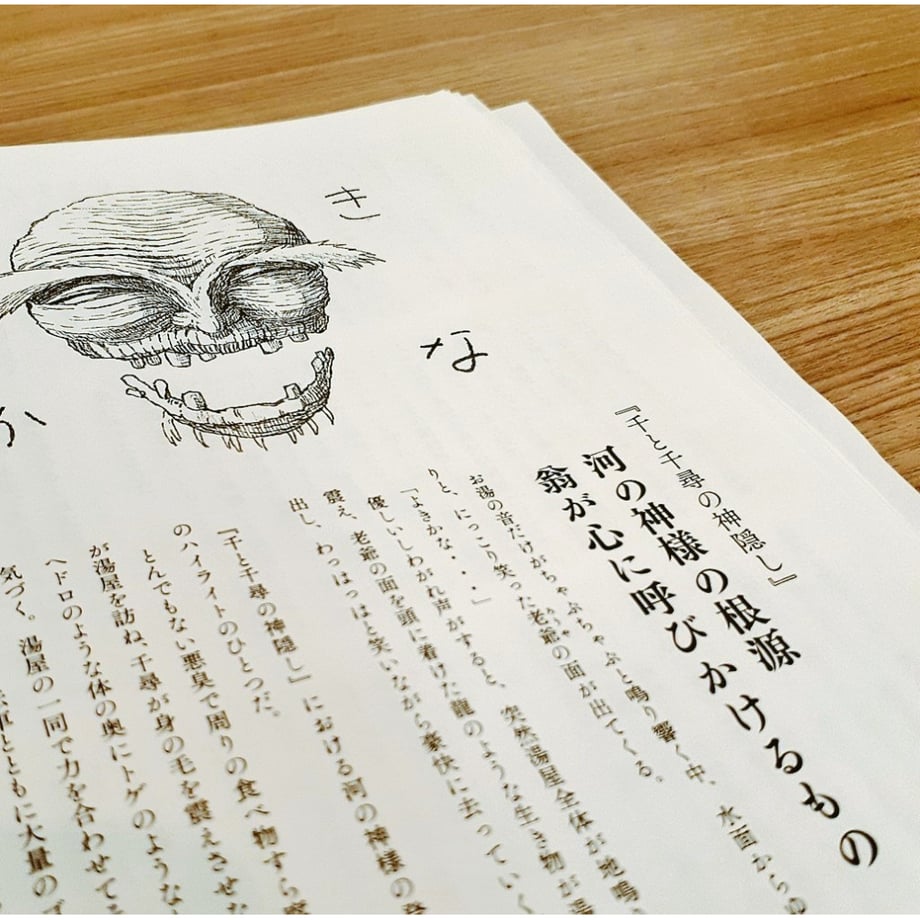 き
な
か
『千と千尋の神隠し』
河の神様の根源
翁が心に呼びかけるもの
お湯の音だけがちゃぷちゃぷと鳴り響く中、水面からゆ
りと、にっこり笑った老爺の面が出てくる。
「よきかな・・・」
優しいしわがれ声がすると、突然湯屋全体が地鳴
震え、老爺の面を頭に着けた龍のような生き物が湯
出し、わっはっはと笑いながら豪快に去っていく
『千と千尋の神隠し』における河の神様の登
のハイライトのひとつだ。
とんでもない悪臭で周りの食べ物すら腐
が湯屋を訪ね、千尋が身の毛を震えさせな
ヘドロのような体の奥にトゲのような
気づく。湯屋の一同で力を合わせて
とともに大量の